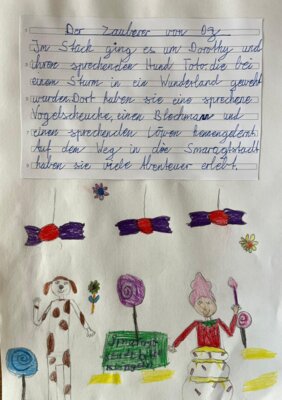 Der Zauberer von Oz
Im Stück ging es um Dorothy und
ihren sprechenden Hund Toto, die bei
einem Sturm in ein Wunderland geweht
wurden. Dort haben sie eine sprechene
Vogelscheuche, einen Blechmann und
einen sprechenden Löwen kennengelernt.
Auf dem Weg in die Smaragdstadt
haben sie viele Abenteuer erlebt.